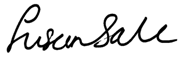 Susan Sale